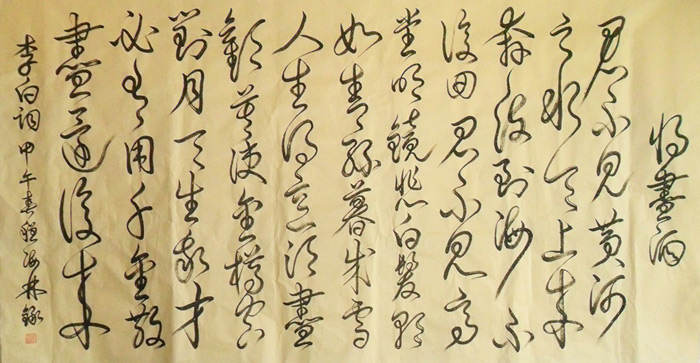 将盡酒
君不见黄河
之水天上来
奔流到海不
復回君不见高
堂明鏡悲白髮朝
如青絲暮成雪
人生得意须盡
歡莫使金樽空
對月天生我才
必有用千金散
盡還復来
李白词甲午春海林錄